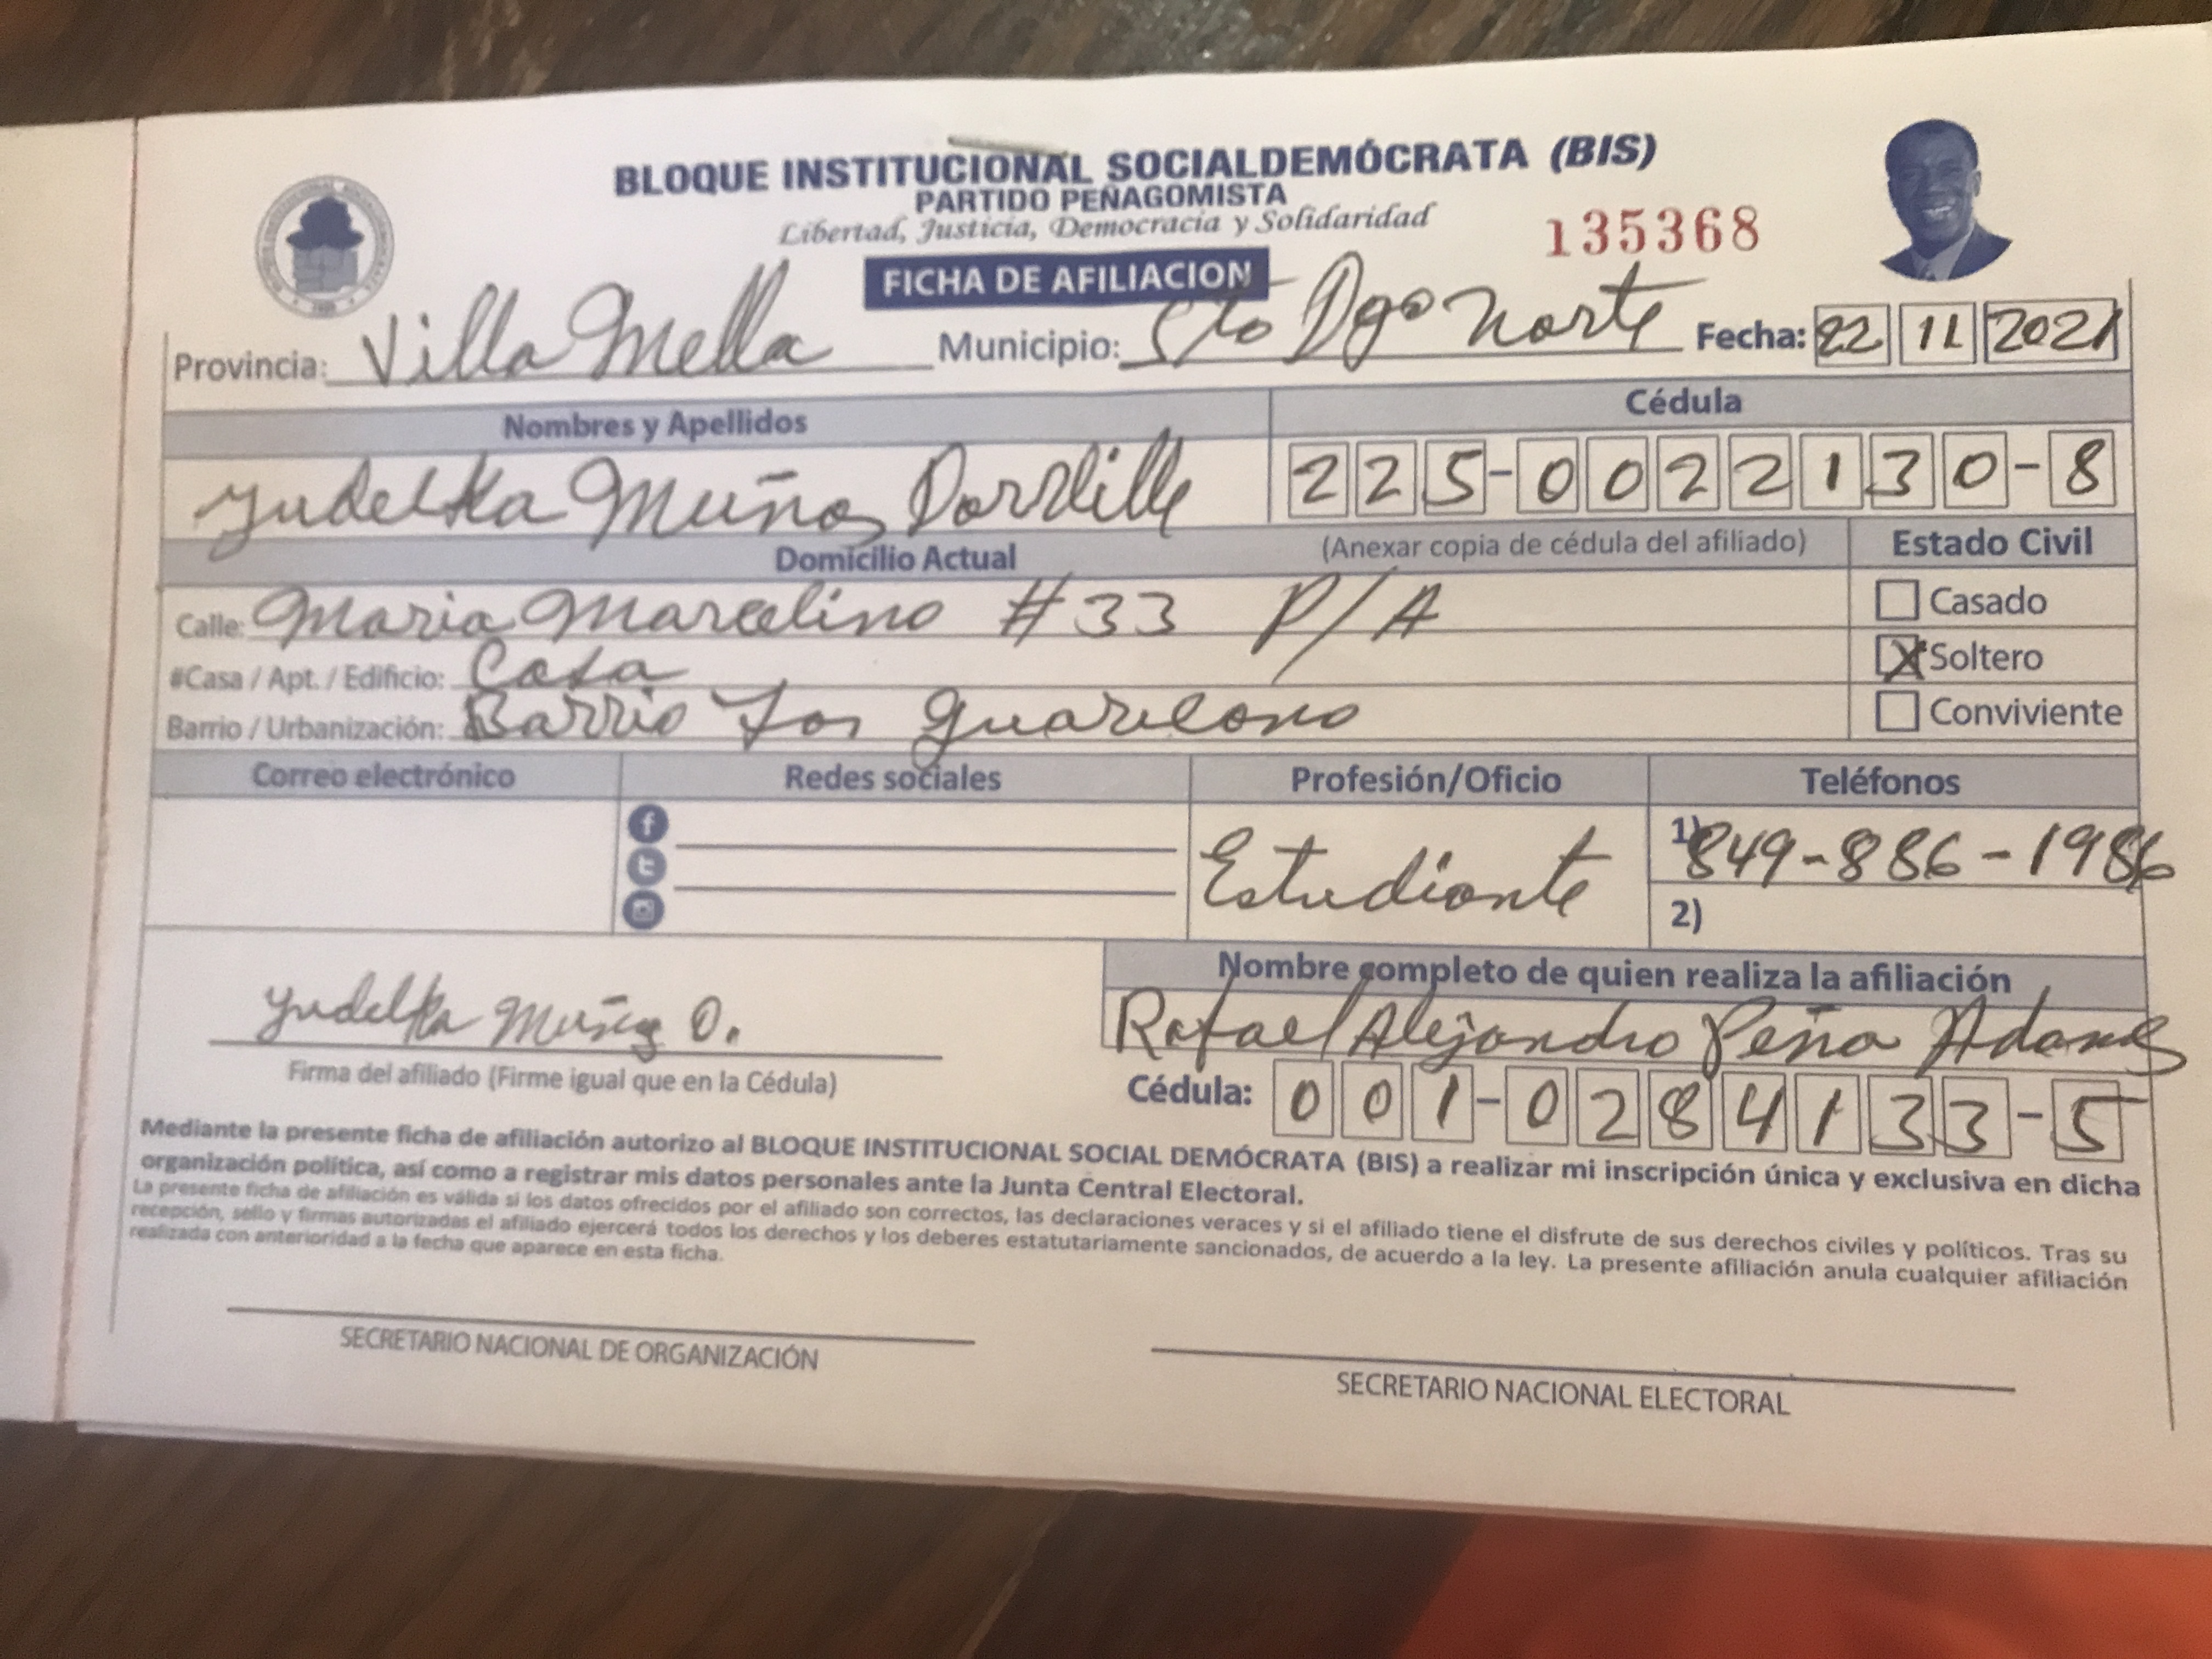 BLOQUE INSTITUCIONAL SOCIALDEMÓCRATA (BIS)
PARTIDO PEÑAGOMISTA
Libertad, Justicia, Democracia y Solidaridad
135368
FICHA DE AFILIACION
Provincia: Villa Mella Municipio: Sto Dgo Norte Fecha: 22 11 2021
Nombres y Apellidos Cédula
Yudelka Muños 225-0022130-8
Domicilio Actual (Anexar copia de cédula del afiliado) Estado Civil
Calle: Maria Marcelino #33 P/A Casado
#Casa / Apt. / Edificio: Casa X Soltero
Barrio / Urbanización: Barrio Los Conviviente
Correo electrónico Redes sociales Profesión/Oficio Teléfonos
Estudiante 1) 849-886-1986
2)
Nombre completo de quien realiza la afiliación
Yudelka Muñoz O. Rafael Alejandro Peña Adames
Firma del afiliado (Firme igual que en la Cédula) Cédula: 001-0284133-5
Mediante la presente ficha de afiliación autorizo al BLOQUE INSTITUCIONAL SOCIAL DEMÓCRATA (BIS) a realizar mi inscripción única y exclusiva en dicha
organización política, así como a registrar mis datos personales ante la Junta Central Electoral.
La presente ficha de afiliación es válida si los datos ofrecidos por el afiliado son correctos, las declaraciones veraces y si el afiliado tiene el disfrute de sus derechos civiles y políticos. Tras su
recepción, sello y firmas autorizadas el afiliado ejercerá todos los derechos y los deberes estatutariamente sancionados, de acuerdo a la ley. La presente afiliación anula cualquier afiliación
realizada con anterioridad a la fecha que aparece en esta ficha.
SECRETARIO NACIONAL DE ORGANIZACIÓN
SECRETARIO NACIONAL ELECTORAL